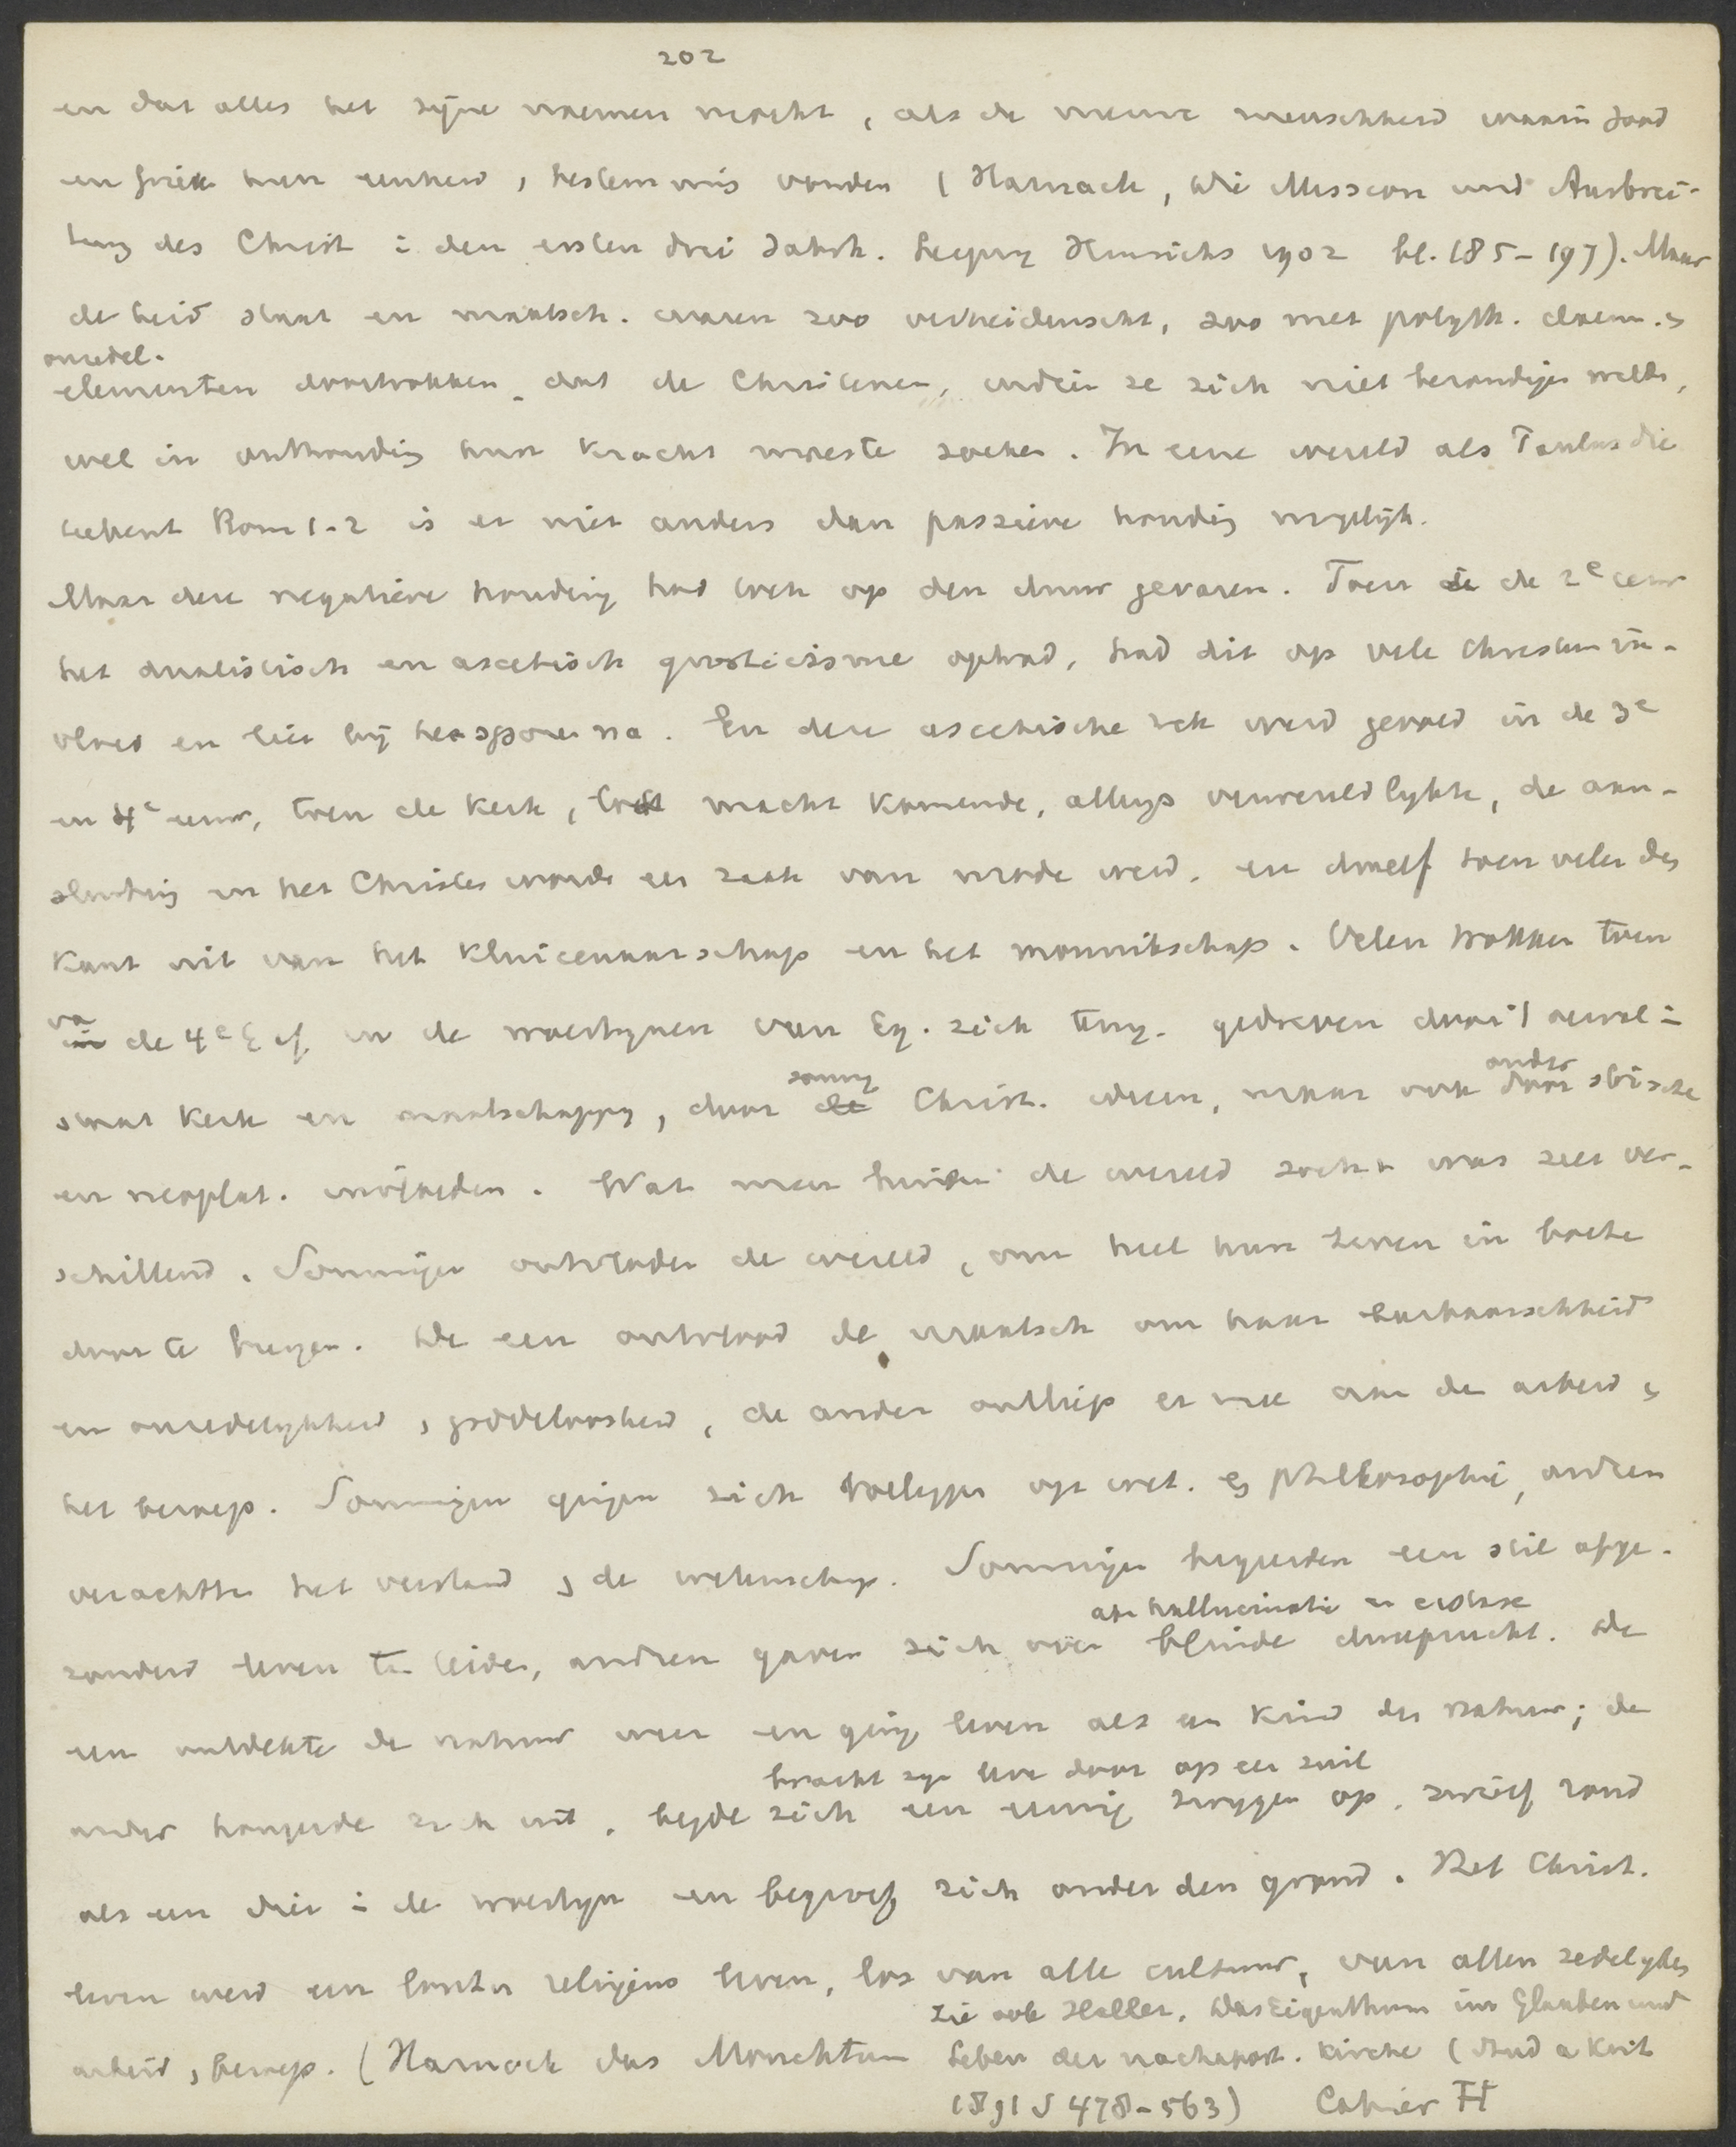 202
en dat alles het zijne noemen mocht, als de nieuwe menschheid waarin Jood
en Griek hun eenheid, bestemming vonden (Harnack, Die Mission und Ausbrei-
tung des Christ i den ersten drei Jahrh. Leipzig Hinrichs 1902 bl. 185-197). Maar
de heid staat en maatsch. waren zoo verheidenscht, zoo met polyth. daem. &
onzedel.
elementen doortrokken dat de Christenen, indien ze zich niet bezondigen wilden,
wel in onthouding hun kracht moesten zoeken. In eene wereld als Paulus die
teekent Rom 1-2 is er niet anders dan passieve houding mogelijk.
Maar deze negatieve houding had toch op den duur gevaren. Toen de 2e eeuw
het dualistisch en ascetisch gnosticisme optrad, had dit op vele Christenen in-
vloed en liet bij hen sporen na. En deze ascetische trek werd gevoed in de 3e
en 4e eeuw, toen de kerk, tot macht komende, allengs verwereldlijkte, de aan-
sluiting en het Christen worden een zaak van mode werd. en dreef toen velen den
kant uit van het kluizenaarschap en het monnikschap. Velen trokken toen
na
de 4e E in de woestijnen van Eg. zich terug. gedreven door 't verval i
staat kerk en maatschappij, door
sommige
Christ. ideeen, maar ook
onder
stoische
en neoplat. invloeden. Wat men buiten de wereld zocht was zeer ver-
schillend. Sommigen ontvloden de wereld, om heel hun leven in boete
door te brengen. De een ontvlood de maatsch om haar barbaarschheid
en onzedelijkheid, goddeloosheid, de ander ontliep er mee aan de arbeid &
het beroep. Sommigen gingen zich toeleggen op wet. & philosophie, andren
verachtten het verstand, de wetenschap. Sommigen begeerden een stil afge-
zonderd leven te leiden, andren gaven zich over
aan hallucinatie en extase
blinde dweepzucht. De
een ontdekte de natuur weer en ging leven als een kind der natuur; de
ander hongerde zich uit,
bracht zijn leven door op een zuil
legde zich een eeuwig zwijgen op, zwierf rond
als een dier i de woestijn en begroef zich onder den grond. Het Christ.
leven werd een louter religieus leven, los van alle cultuur, van allen zedelijken
arbeid, beroep. (Harnack das Monchtum
Zie ook Haller, Das Eigenthum im Glauben und
Leben der nachapost. Kirche (Stud u Krit
1891 S 478-563) Cahier H